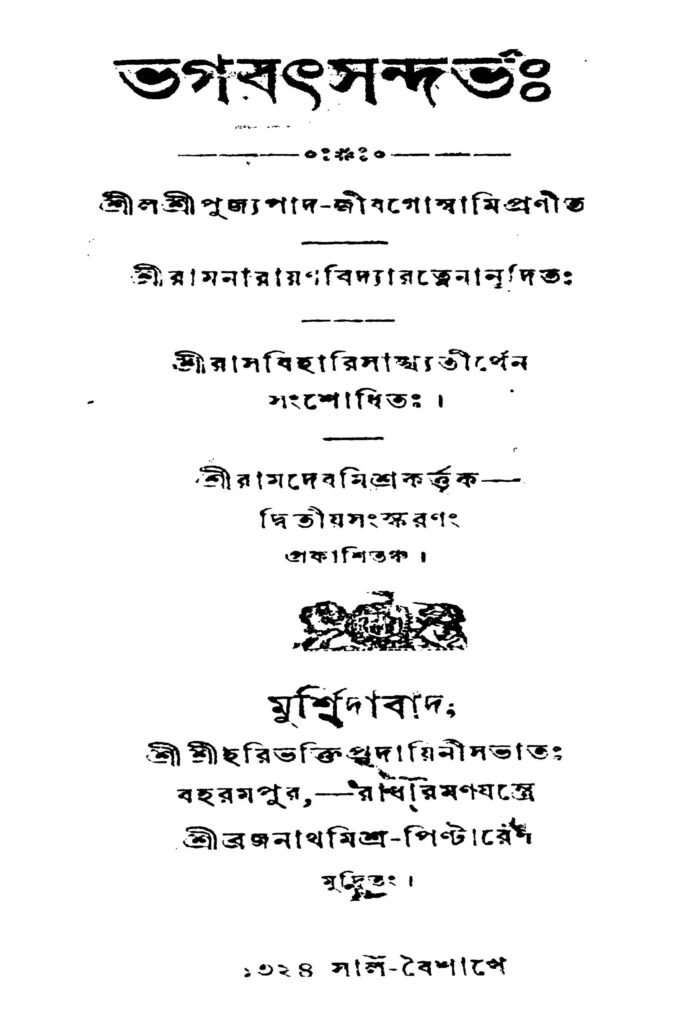 ভগবৎসন্দর্ভঃ
শ্রীলশ্রীপূজ্যপাদ-জীবগোস্বামিপ্রণীত
শ্রীরামনারায়ণবিদ্যারত্নেনানূদিতঃ
শ্রীরাসবিহারিসাঙ্খ্যতীর্থেন
সংশোধিতঃ ।
শ্রীরামদেবমিশ্রকর্ত্তৃক—
দ্বিতীয়সংস্করণং
প্রকাশিতঞ্চ ।
মুর্শিদাবাদ;
শ্রীশ্রীহরিভক্তিপ্রদায়িনীসভাতঃ
বহরমপুর,—রাধারমণযন্ত্রে
শ্রীব্রজনাথমিশ্র-পিণ্টারেণ
মুদ্রিতং ।
১৩২৪ সাল-বৈশাখে